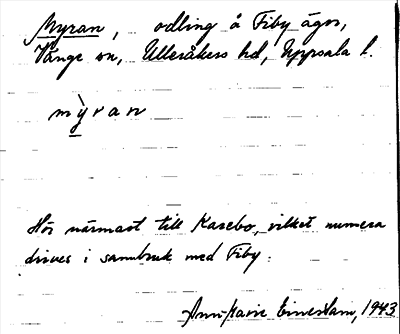 Myran, odling å Fiby ägor,
Vänge sn, Ulleråkers hd, Uppsala l.
mỳran
Hör närmast till Kasebo, vilket numera
drives i sambruk med Fiby.
1943